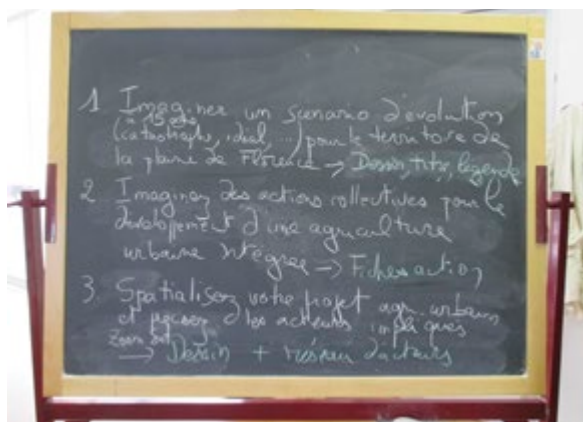 1 Imaginez un scenario d'évolution
(à 15 ans
(catastrophe, idéal, ...) pour le territoire de
la plaine de Florence → Dessin, titre, légende
2 Imaginez des actions collectives pour le
développement d'une agriculture
urbaine intégrée → Fiches action
3. Spatialisez votre projet agri-urbain
et précisez les acteurs impliqués
Zoom
→ Dessin + réseau d'acteurs